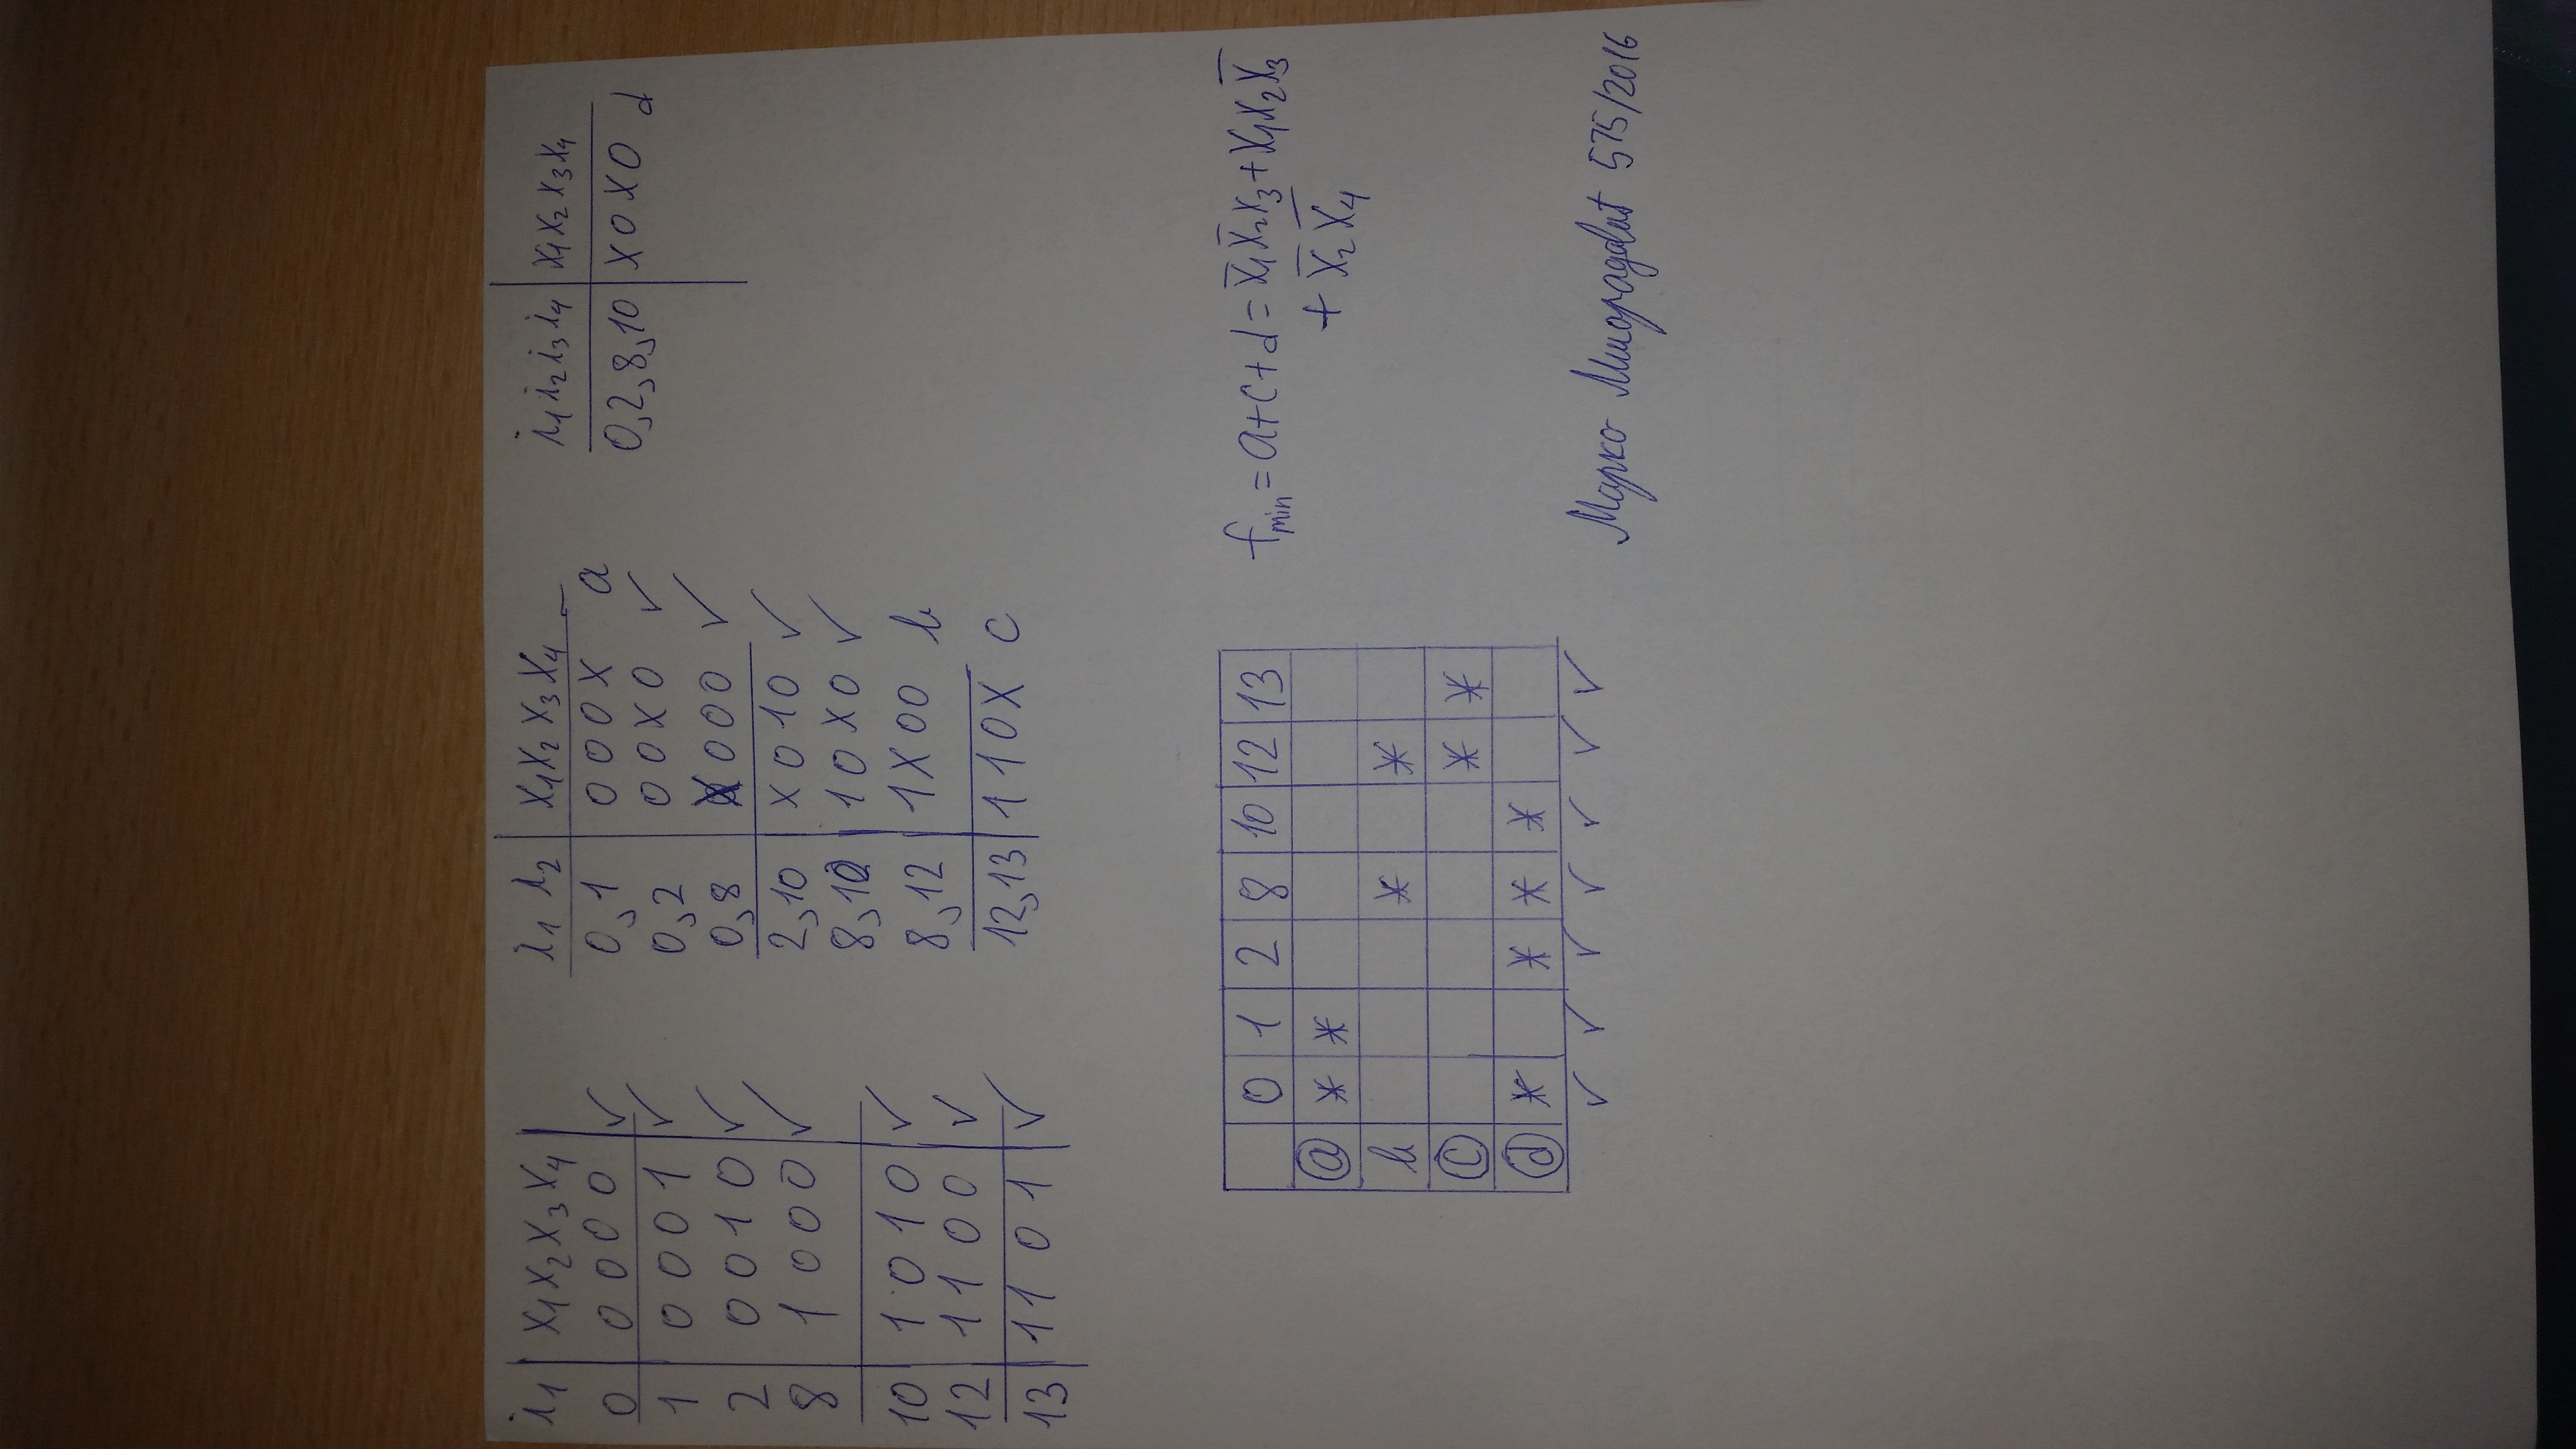 i₁ x₁x₂x₃x₄
0 0000 ✓
1 0001 ✓
2 0010 ✓
8 1000 ✓
10 1010 ✓
12 1100 ✓
13 1101 ✓
i₁ i₂ x₁x₂x₃x₄
0,1 000X a
0,2 00X0 ✓
0,8 X000 ✓
2,10 X010 ✓
8,10 10X0 ✓
8,12 1X00 b
12,13 110X c
i₁i₂i₃i₄ x₁x₂x₃x₄
0,2,8,10 X0X0 d
0 1 2 8 10 12 13
a * *
b * *
c * *
d * * * *
✓ ✓ ✓ ✓ ✓ ✓ ✓
fmin = a+c+d = x̄₁x̄₂x₃+x₁x₂x̄₃
+ x̄₂x̄₄
Марко 575/2016